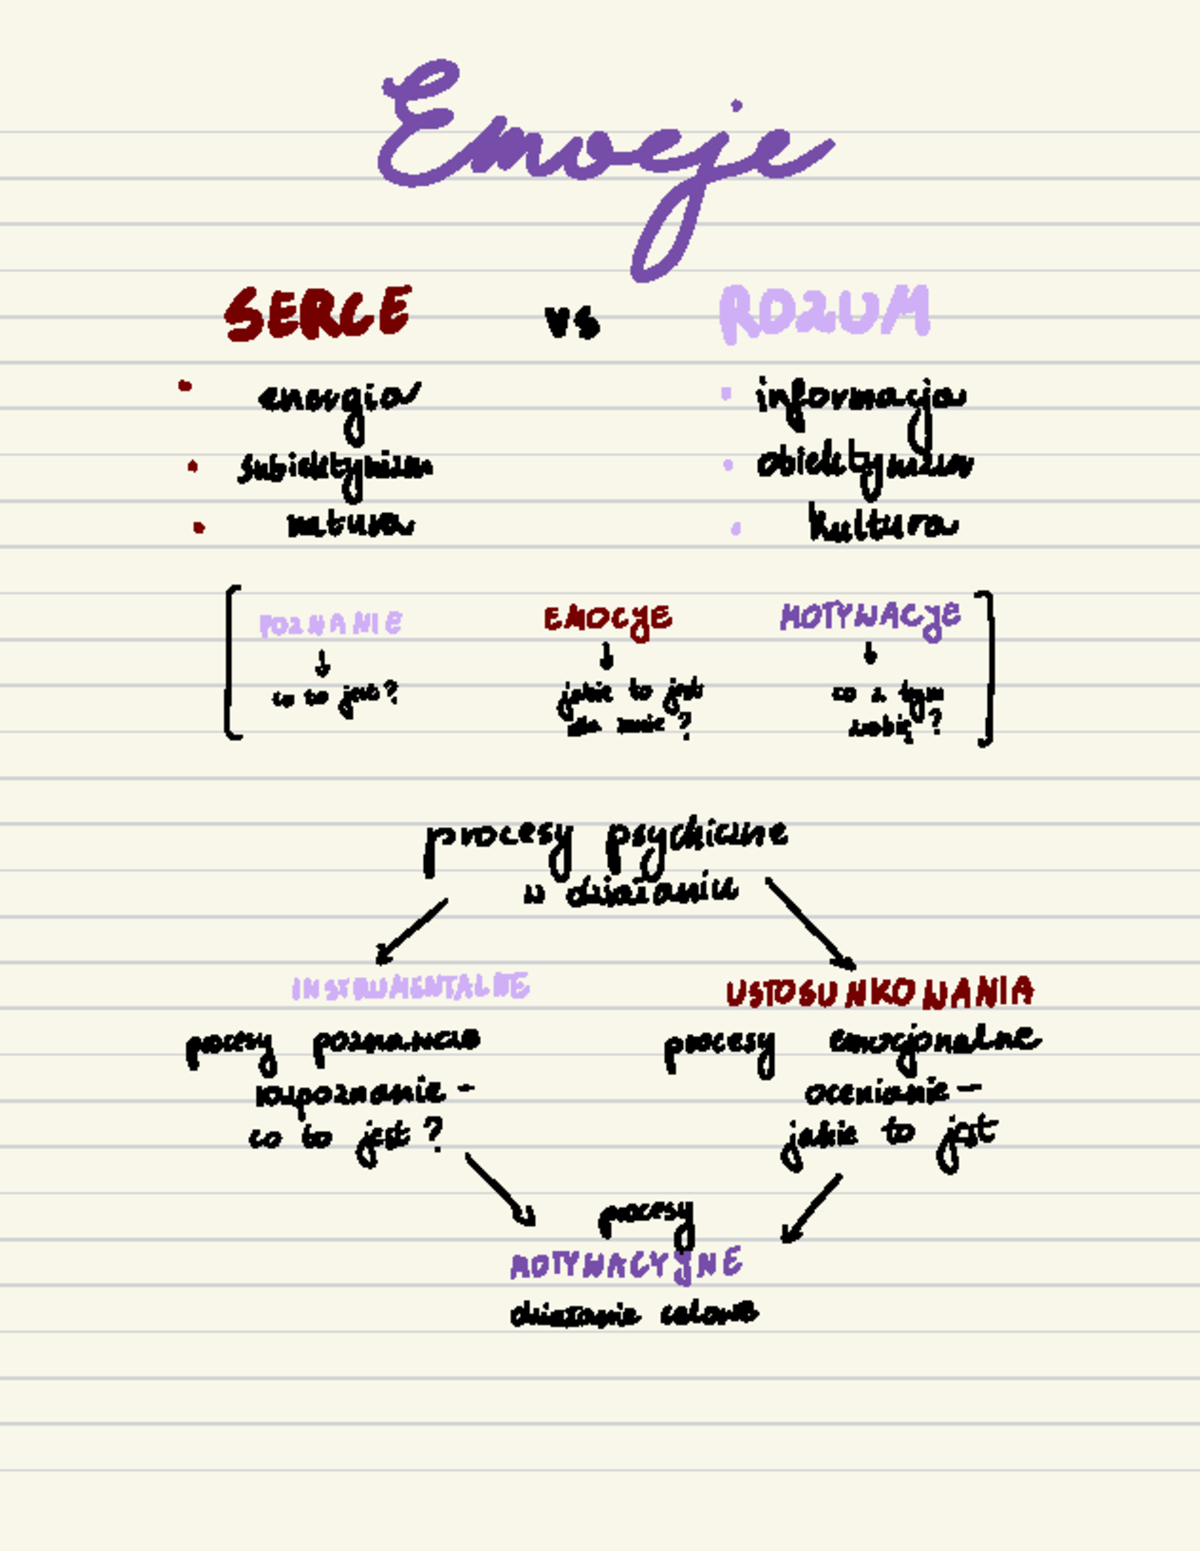 Emocje
SERCE vs ROZUM
energia
informacja
subiektywizm
obiektywizm
natura
kultura
POZNANIE
EMOCJE
MOTYWACJE
co to jest?
jakie to jest
dla mnie?
co z tym
zrobię?
procesy psychiczne
w działaniu
INSTRUMENTALNE
USTOSUNKOWANIA
procesy poznawcze
procesy emocjonalne
rozpoznanie -
ocenianie -
co to jest?
jakie to jest
procesy
MOTYWACYJNE
działanie celowe